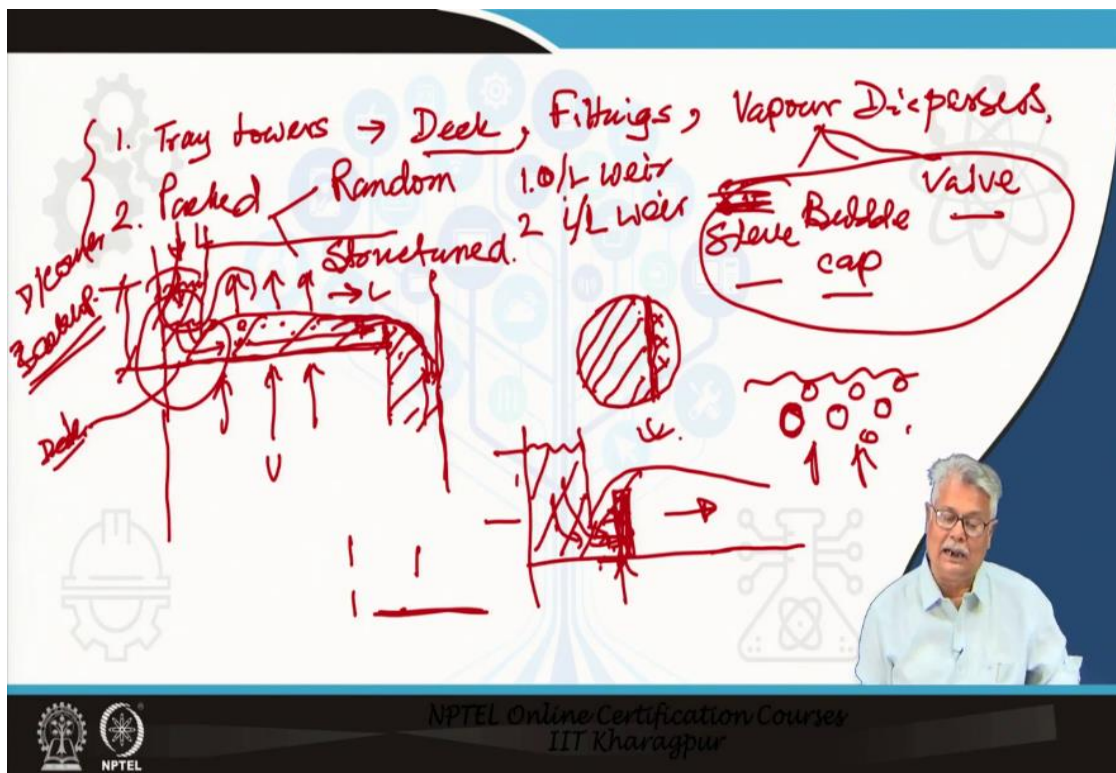 1. Tray towers → Deck, Fittings, Vapour Dispersers.
2. Packed
Random
Structured.
1. O/L weir
2 i/L weir
Sieve Bubble cap
Valve
D/comer
Backup.
L
→ L
Deck.
V
NPTEL Online Certification Courses
IIT Kharagpur
NPTEL